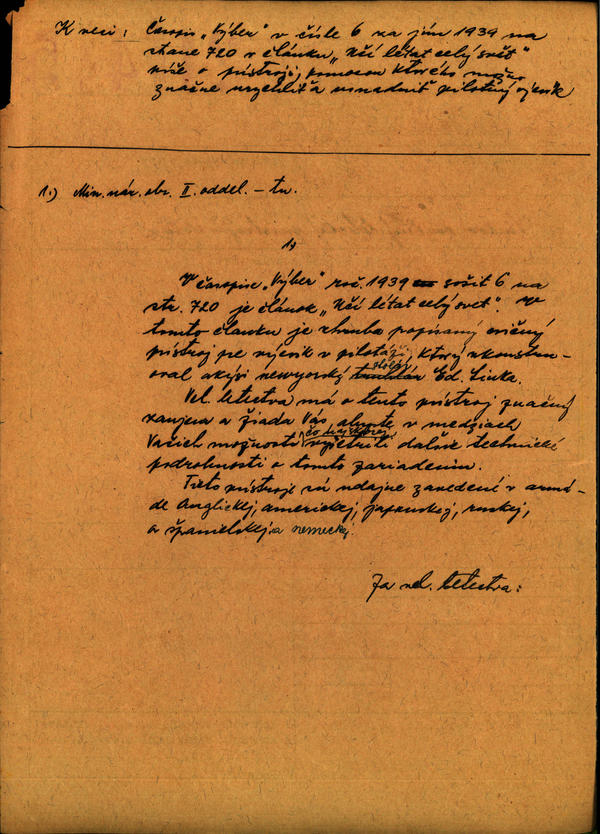 K veci: Časopis „Výber" v čísle 6 za jún 1939 na
strane 720 v článku „Učí létat celý svět"
píše o prístroji, pomocou ktorého možno
značne urýchliť a usnadniť pilotný výcvik
1.) Min. nár. obr. II. oddel. - tu.
1)
V časopise „Výber" roč. 1939 sošit 6 na
str. 720 je článok „Učí létat celý svet". V
tomto článku je zhruba popísaný cvičný
prístroj pre výcvik v pilotáži, ktorý skonštru-
oval akýsi newyorský stolár Ed. Linka.
Vel. letectva má o tento prístroj značný
záujem a žiada Vás, abyste v medziach
Vašich možností čo najskôr vyšetrili daľšie technické
podrobnosti o tomto zariadením.
Tieto prístroje sú udajne zavedené v armá-
de Anglickej, americkej, japonskej, ruskej,
a španielskej a nemeckej.
Za vel. letectva: